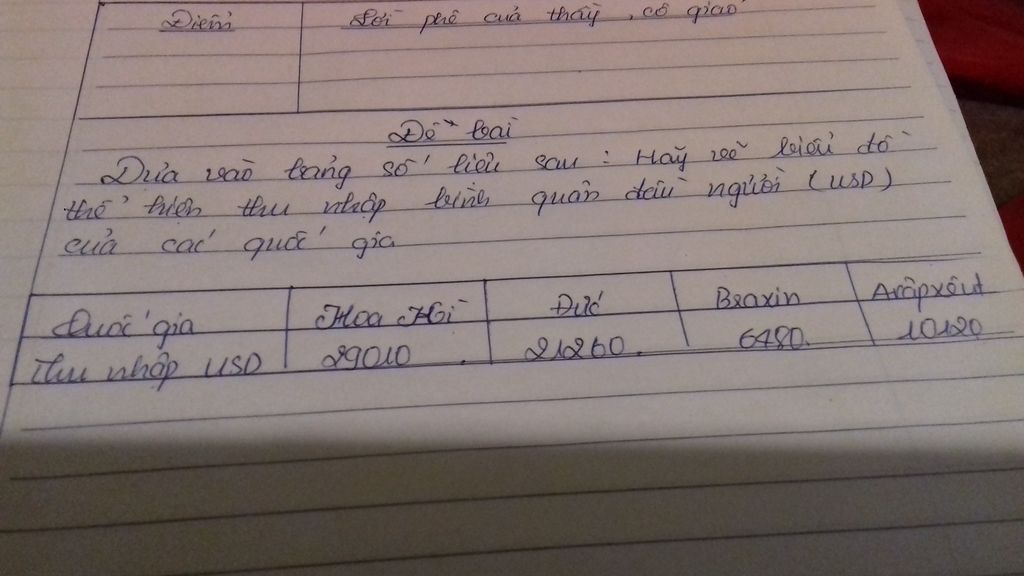 Điểm Lời phê của thầy, cô giáo
Đề bài
Dựa vào bảng số liệu sau: Hãy vẽ biểu đồ
thể hiện thu nhập bình quân đầu người (USD)
của các quốc gia
Quốc gia Hoa Kì Đức Braxin Arâpxêut
Thu nhập USD 29010. 21260. 6480. 10120